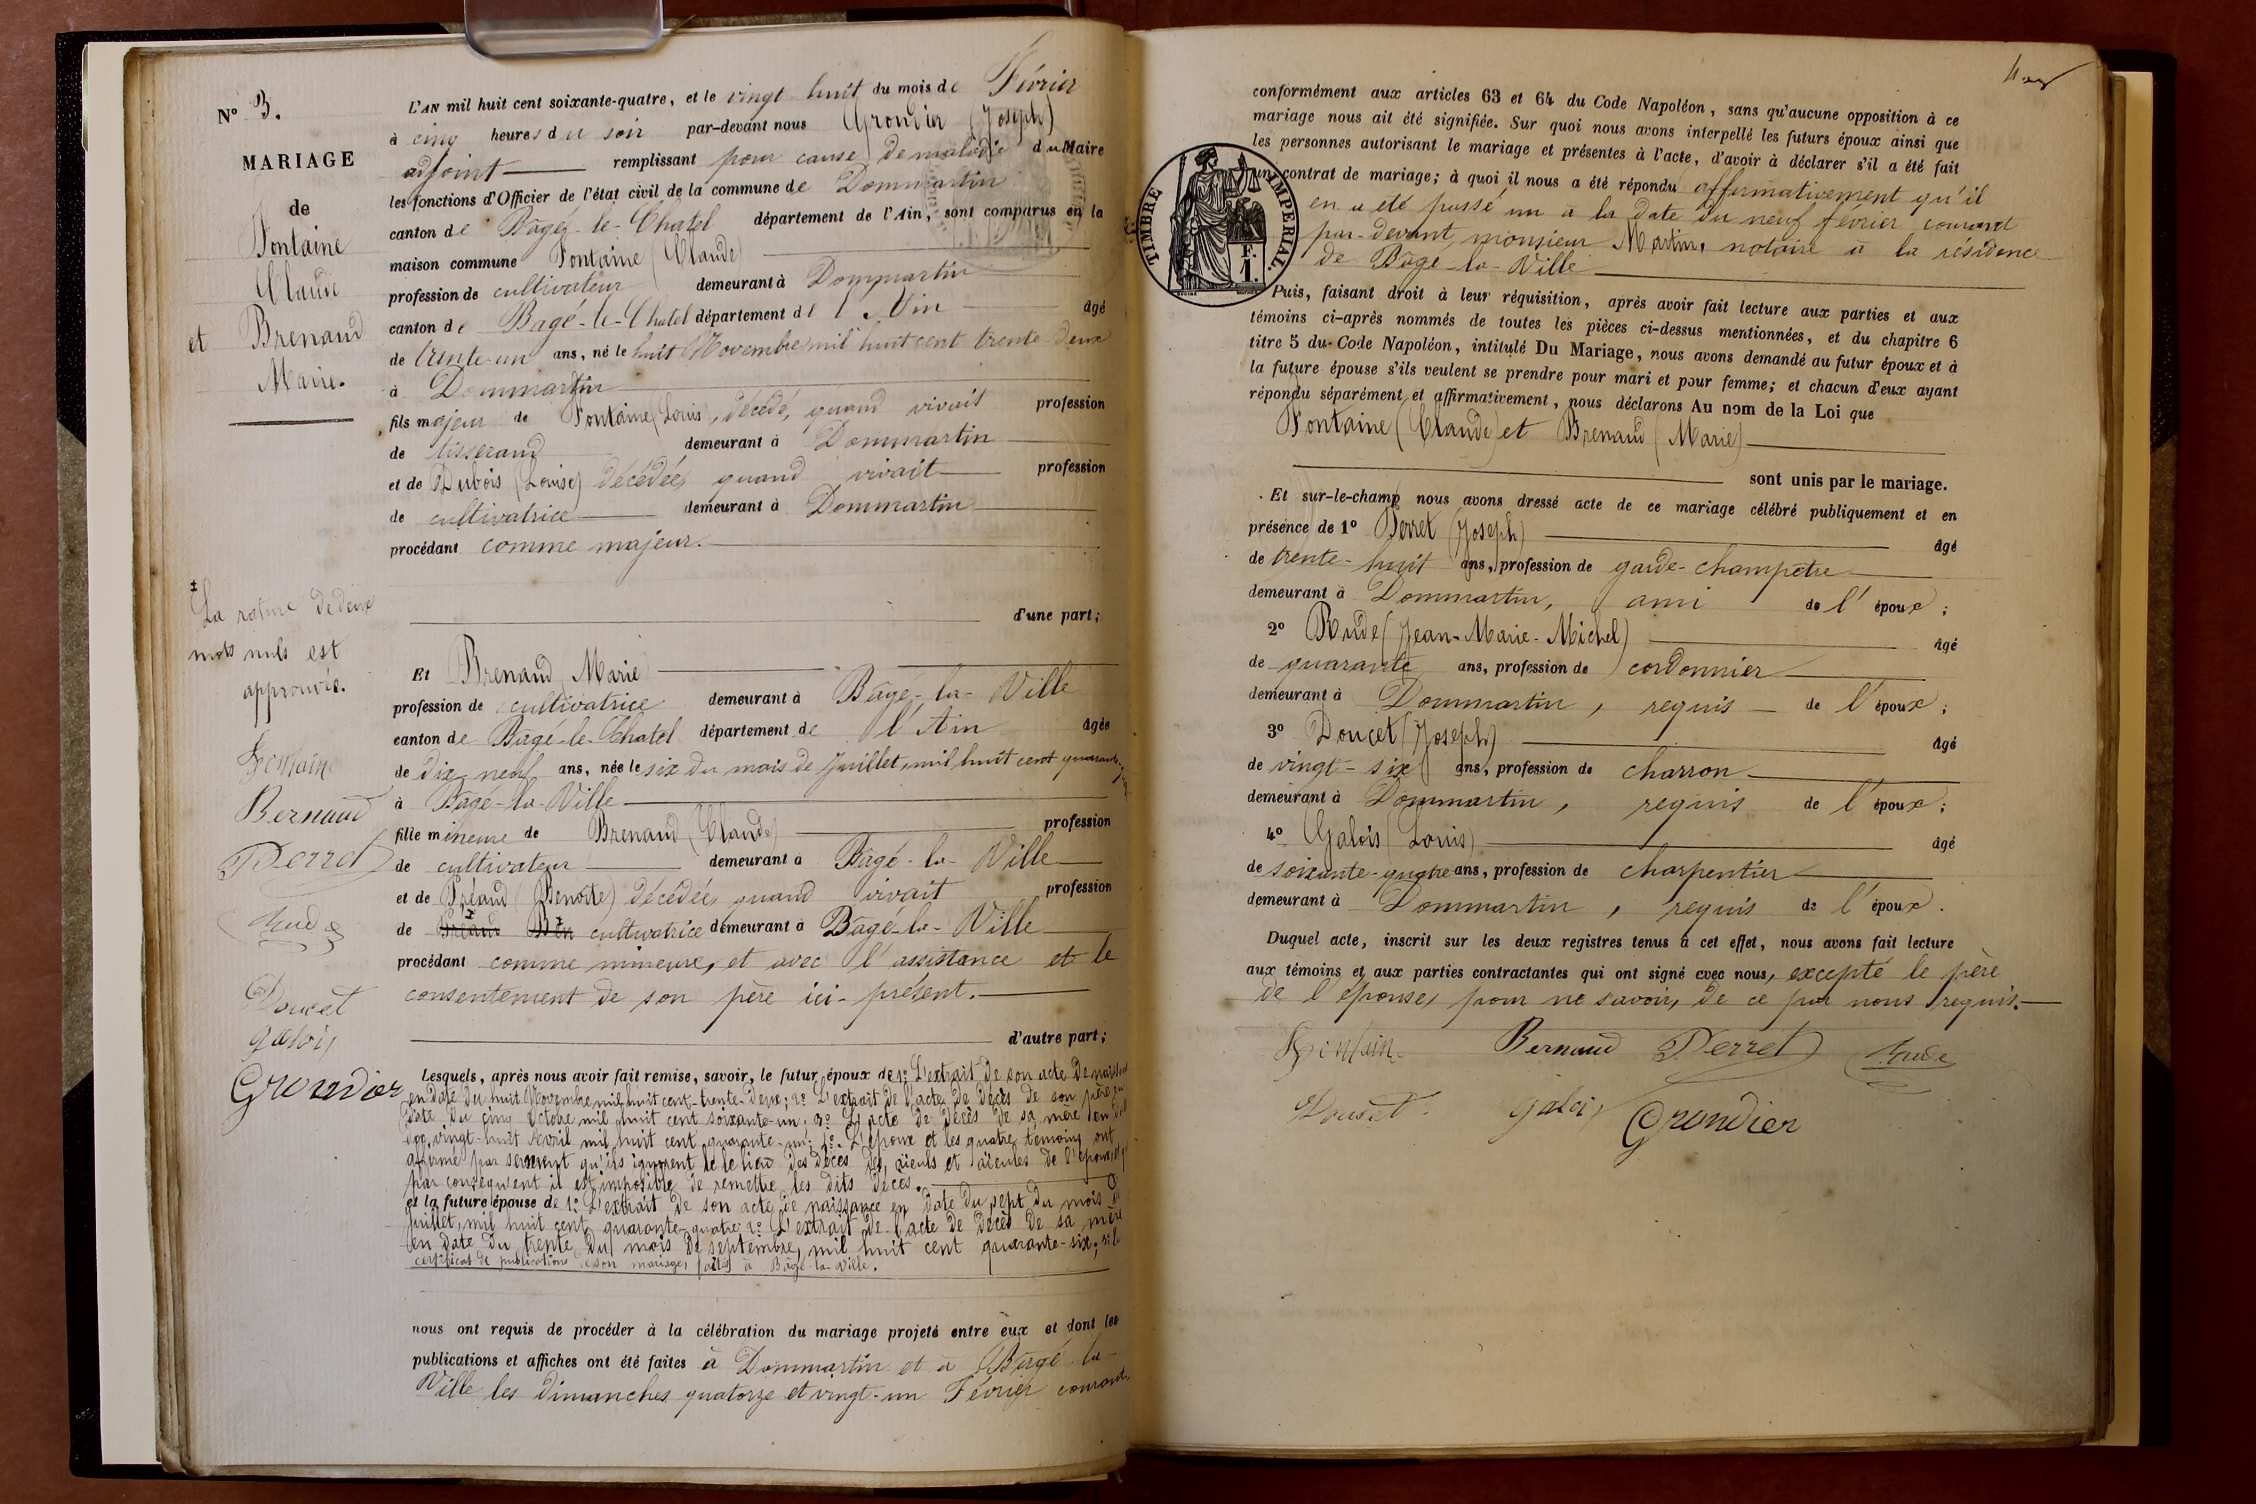 N° 3.
MARIAGE
de
Fontaine
Claude
et Brenaud
Marie.
L'AN mil huit cent soixante-quatre, et le vingt huit du mois de Février
à cinq heures du soir par-devant nous Grondier (Joseph)
adjoint remplissant pour cause de maladie du Maire
les fonctions d'Officier de l'état civil de la commune de Dommartin
canton de Bâgé-le-Chatel département de l'Ain, sont comparus en la
maison commune Fontaine (Claude)
profession de cultivateur demeurant à Dommartin
canton de Bagé-le-Chatel département de l'Ain âgé
de trente-un ans, né le huit Novembre mil huit cent trente-deux
à Dommartin
fils majeur de Fontaine (Louis), décédé, quand vivait profession
de tisserand demeurant à Dommartin
et de Dubois (Louise) décédée, quand vivait profession
de cultivatrice demeurant à Dommartin
procédant comme majeur.
d'une part;
‡
La rature de deux
mots nuls est
approuvée.
Fontaine
Bernaud
Perret
Rude
Doucet
galois
Grondier
Et Brenaud Marie
profession de cultivatrice demeurant à Bâgé-la-Ville
canton de Bâgé-le-Chatel département de l'Ain âgée
de dix-neuf ans, née le six du mois de Juillet, mil huit cent quarante-
à Bâgé-la-Ville
fille mineure de Brenaud (Claude) profession
de cultivateur demeurant à Bâgé-la-Ville
et de Préaud (Benoite) décédée, quand vivait profession
de Préaud Ben cultivatrice demeurant à Bâgé-la-Ville
procédant comme mineure, et avec l'assistance et le
consentement de son père ici-présent.
d'autre part;
Lesquels, après nous avoir fait remise, savoir, le futur époux de 1° L'extrait de son acte de naissance
en date du huit Novembre mil huit cent-trente-deux; 2° L'extrait de l'acte de décès de son père en
date du cinq Octobre mil huit cent soixante-un; 3° L'acte de décès de sa mère en date
vingt-huit Avril mil huit cent quarante-un; 4° L'époux et les quatre témoins ont
affirmé par serment qu'ils ignorent le lieu des décès des aïeuls et aïeules de l'époux, et q'
par conséquent il est impossible de remettre les dits décès.
et la future épouse de 1° L'extrait de son acte de naissance en date du sept du mois de
Juillet, mil huit cent quarante-quatre 2° L'extrait de l'acte de décès de sa mère
en date du trente du mois de septembre, mil huit cent quarante-six; 3° le
certificat de publication de son mariage, faites à Bâgé-la-Ville.
nous ont requis de procéder à la célébration du mariage projeté entre eux et dont les
publications et affiches ont été faites à Dommartin et à Bâgé-la-
Ville les dimanches quatorze et vingt-un Février courant
conformément aux articles 63 et 64 du Code Napoléon, sans qu'aucune opposition à ce
mariage nous ait été signifiée. Sur quoi nous avons interpellé les futurs époux ainsi que
les personnes autorisant le mariage et présentes à l'acte, d'avoir à déclarer s'il a été fait
un contrat de mariage; à quoi il nous a été répondu affirmativement qu'il
en a été passé un à la date du neuf février courant
par-devant, monsieur Martin, notaire à la résidence
de Bâgé-la-Ville
TIMBRE IMPERIAL.
F.
1.
Puis, faisant droit à leur réquisition, après avoir fait lecture aux parties et aux
témoins ci-après nommés de toutes les pièces ci-dessus mentionnées, et du chapitre 6
titre 5 du Code Napoléon, intitulé Du Mariage, nous avons demandé au futur époux et à
la future épouse s'ils veulent se prendre pour mari et pour femme; et chacun d'eux ayant
répondu séparément et affirmativement, nous déclarons Au nom de la Loi que
Fontaine (Claude) et Brenaud (Marie)
sont unis par le mariage.
Et sur-le-champ nous avons dressé acte de ce mariage célébré publiquement et en
présence de 1° Perret (Joseph) âgé
de trente-huit ans, profession de garde-champêtre
demeurant à Dommartin, ami de l'époux;
2° Rude (Jean-Marie-Michel) âgé
de quarante ans, profession de cordonnier
demeurant à Dommartin, requis de l'époux;
3° Doucet (Joseph) âgé
de vingt-six ans, profession de charron
demeurant à Dommartin, requis de l'époux;
4° Galois (Louis) âgé
de soixante-quatre ans, profession de charpentier
demeurant à Dommartin, requis de l'époux.
Duquel acte, inscrit sur les deux registres tenus à cet effet, nous avons fait lecture
aux témoins et aux parties contractantes qui ont signé avec nous, excepté le père
de l'épouse, pour ne savoir, de ce par nous requis.
Fontaine Bernaud Perret Rude
Doucet galois Grondier